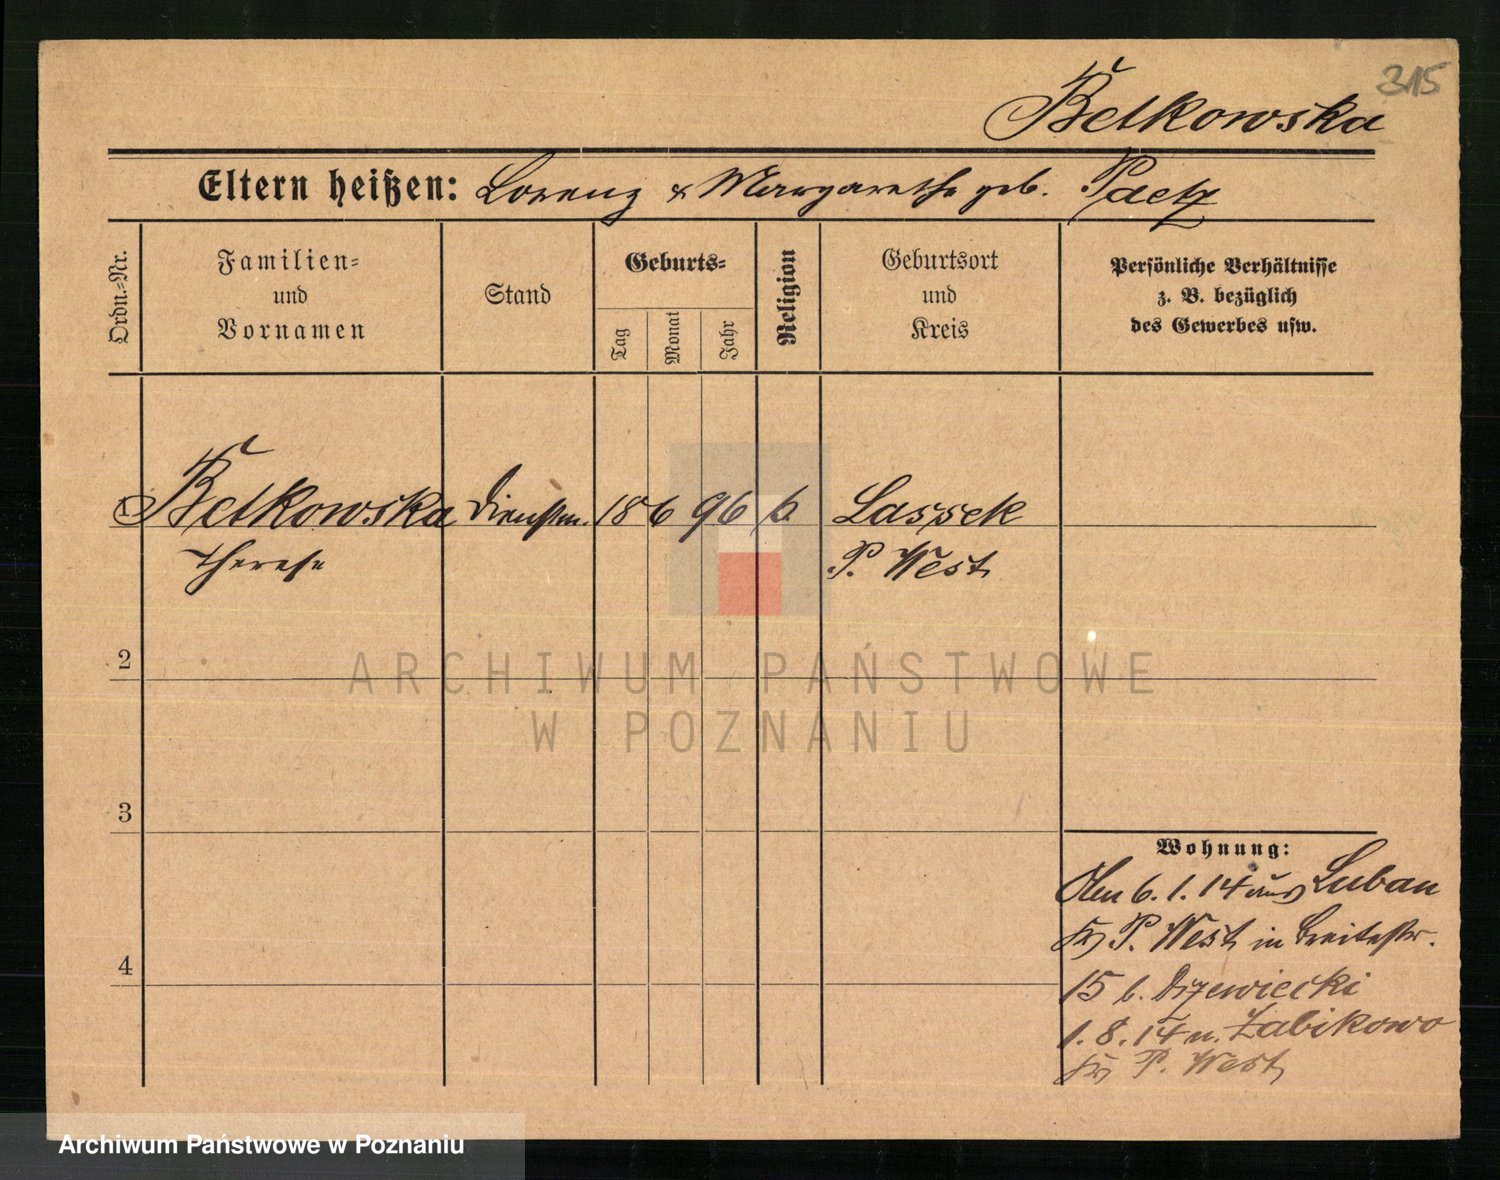 315
Betkowska
Eltern heißen: Lorenz & Margarethe geb. Paetz
Ordn.-Nr.
Familien-
und
Vornamen
Stand
Geburts-
Tag
Monat
Jahr
Religion
Geburtsort
und
Kreis
Persönliche Verhältnisse
z. B. bezüglich
des Gewerbes usw.
1 Betkowska Dienstm. 18 6 96 k. Lassek
Therese P. West
2
3
4
Wohnung:
Am 6.1.14 aus Luban
Kr P. West in Breitestr.
15 b. Drzewiecki
1.8.14 n. Zabikowo
Kr P. West
ARCHIWUM PAŃSTWOWE
W POZNANIU
Archiwum Państwowe w Poznaniu